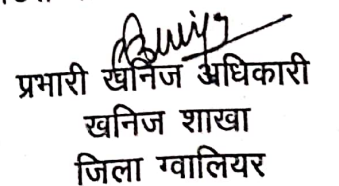 प्रभारी खनिज अधिकारी
खनिज शाखा
जिला ग्वालियर